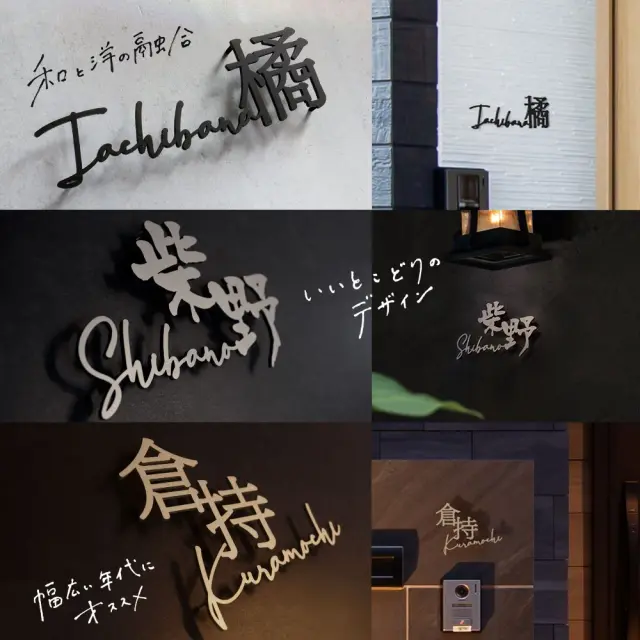 和と洋の融合
Tachibana橘
Tachibana橘
柴野
Shibano
いいとこどりの
デザイン
柴野
Shibano
倉持
Kuramochi
幅広い年代に
オススメ
倉持
Kuramochi